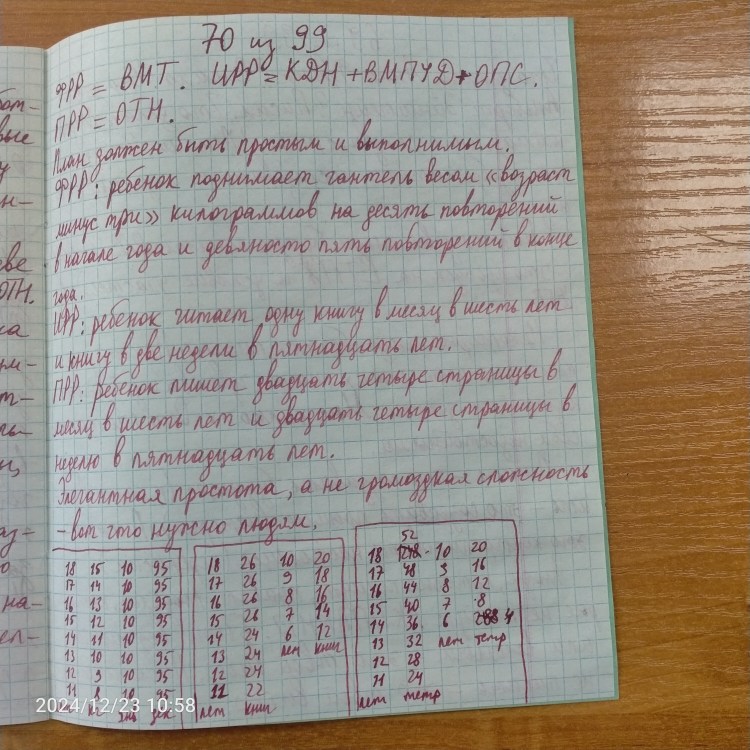 70 из 99
ФРР = ВМТ. ИРР = КДН + ВМПЧД + ОПС.
ПРР = ОТН.
План должен быть простым и выполнимым.
ФРР: ребенок поднимает гантель весом «возраст
минус три» килограммов на десять повторений
в начале года и девяносто пять повторений в конце
года.
ИРР: ребенок читает одну книгу в месяц в шесть лет
и книгу в две недели в пятнадцать лет.
ПРР: ребенок пишет двадцать четыре страницы в
месяц в шесть лет и двадцать четыре страницы в
неделю в пятнадцать лет.
Элегантная простота, а не громоздкая сложность
- вот что нужно людям.
18 15 10 95
17 14 10 95
16 13 10 95
15 12 10 95
14 11 10 95
13 10 10 95
12 9 10 95
11 8 10 95
лет кг янв дек
18 26 10 20
17 26 9 18
16 26 8 16
15 26 7 14
14 24 6 12
13 24 лет книг
12 24
11 22
лет книг
18 52 10 20
17 48 9 16
16 44 8 12
15 40 7 8
14 36 6 4
13 32 лет тетр
12 28
11 24
лет тетр
бот-
вые
у
н-
ОТН.
ка
т-
ы-
аз-
о
на-
ел-
2024/12/23 10:58